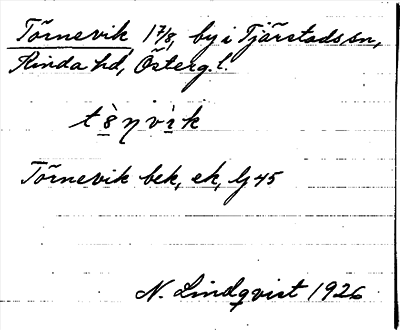 Törnevik 1 7/8, by i Tjärstads sn,
Kinda hd, Österg.l.
t8̀ŋvìk
Törnevik bek, ek, lj 45
N. Lindqvist 1926